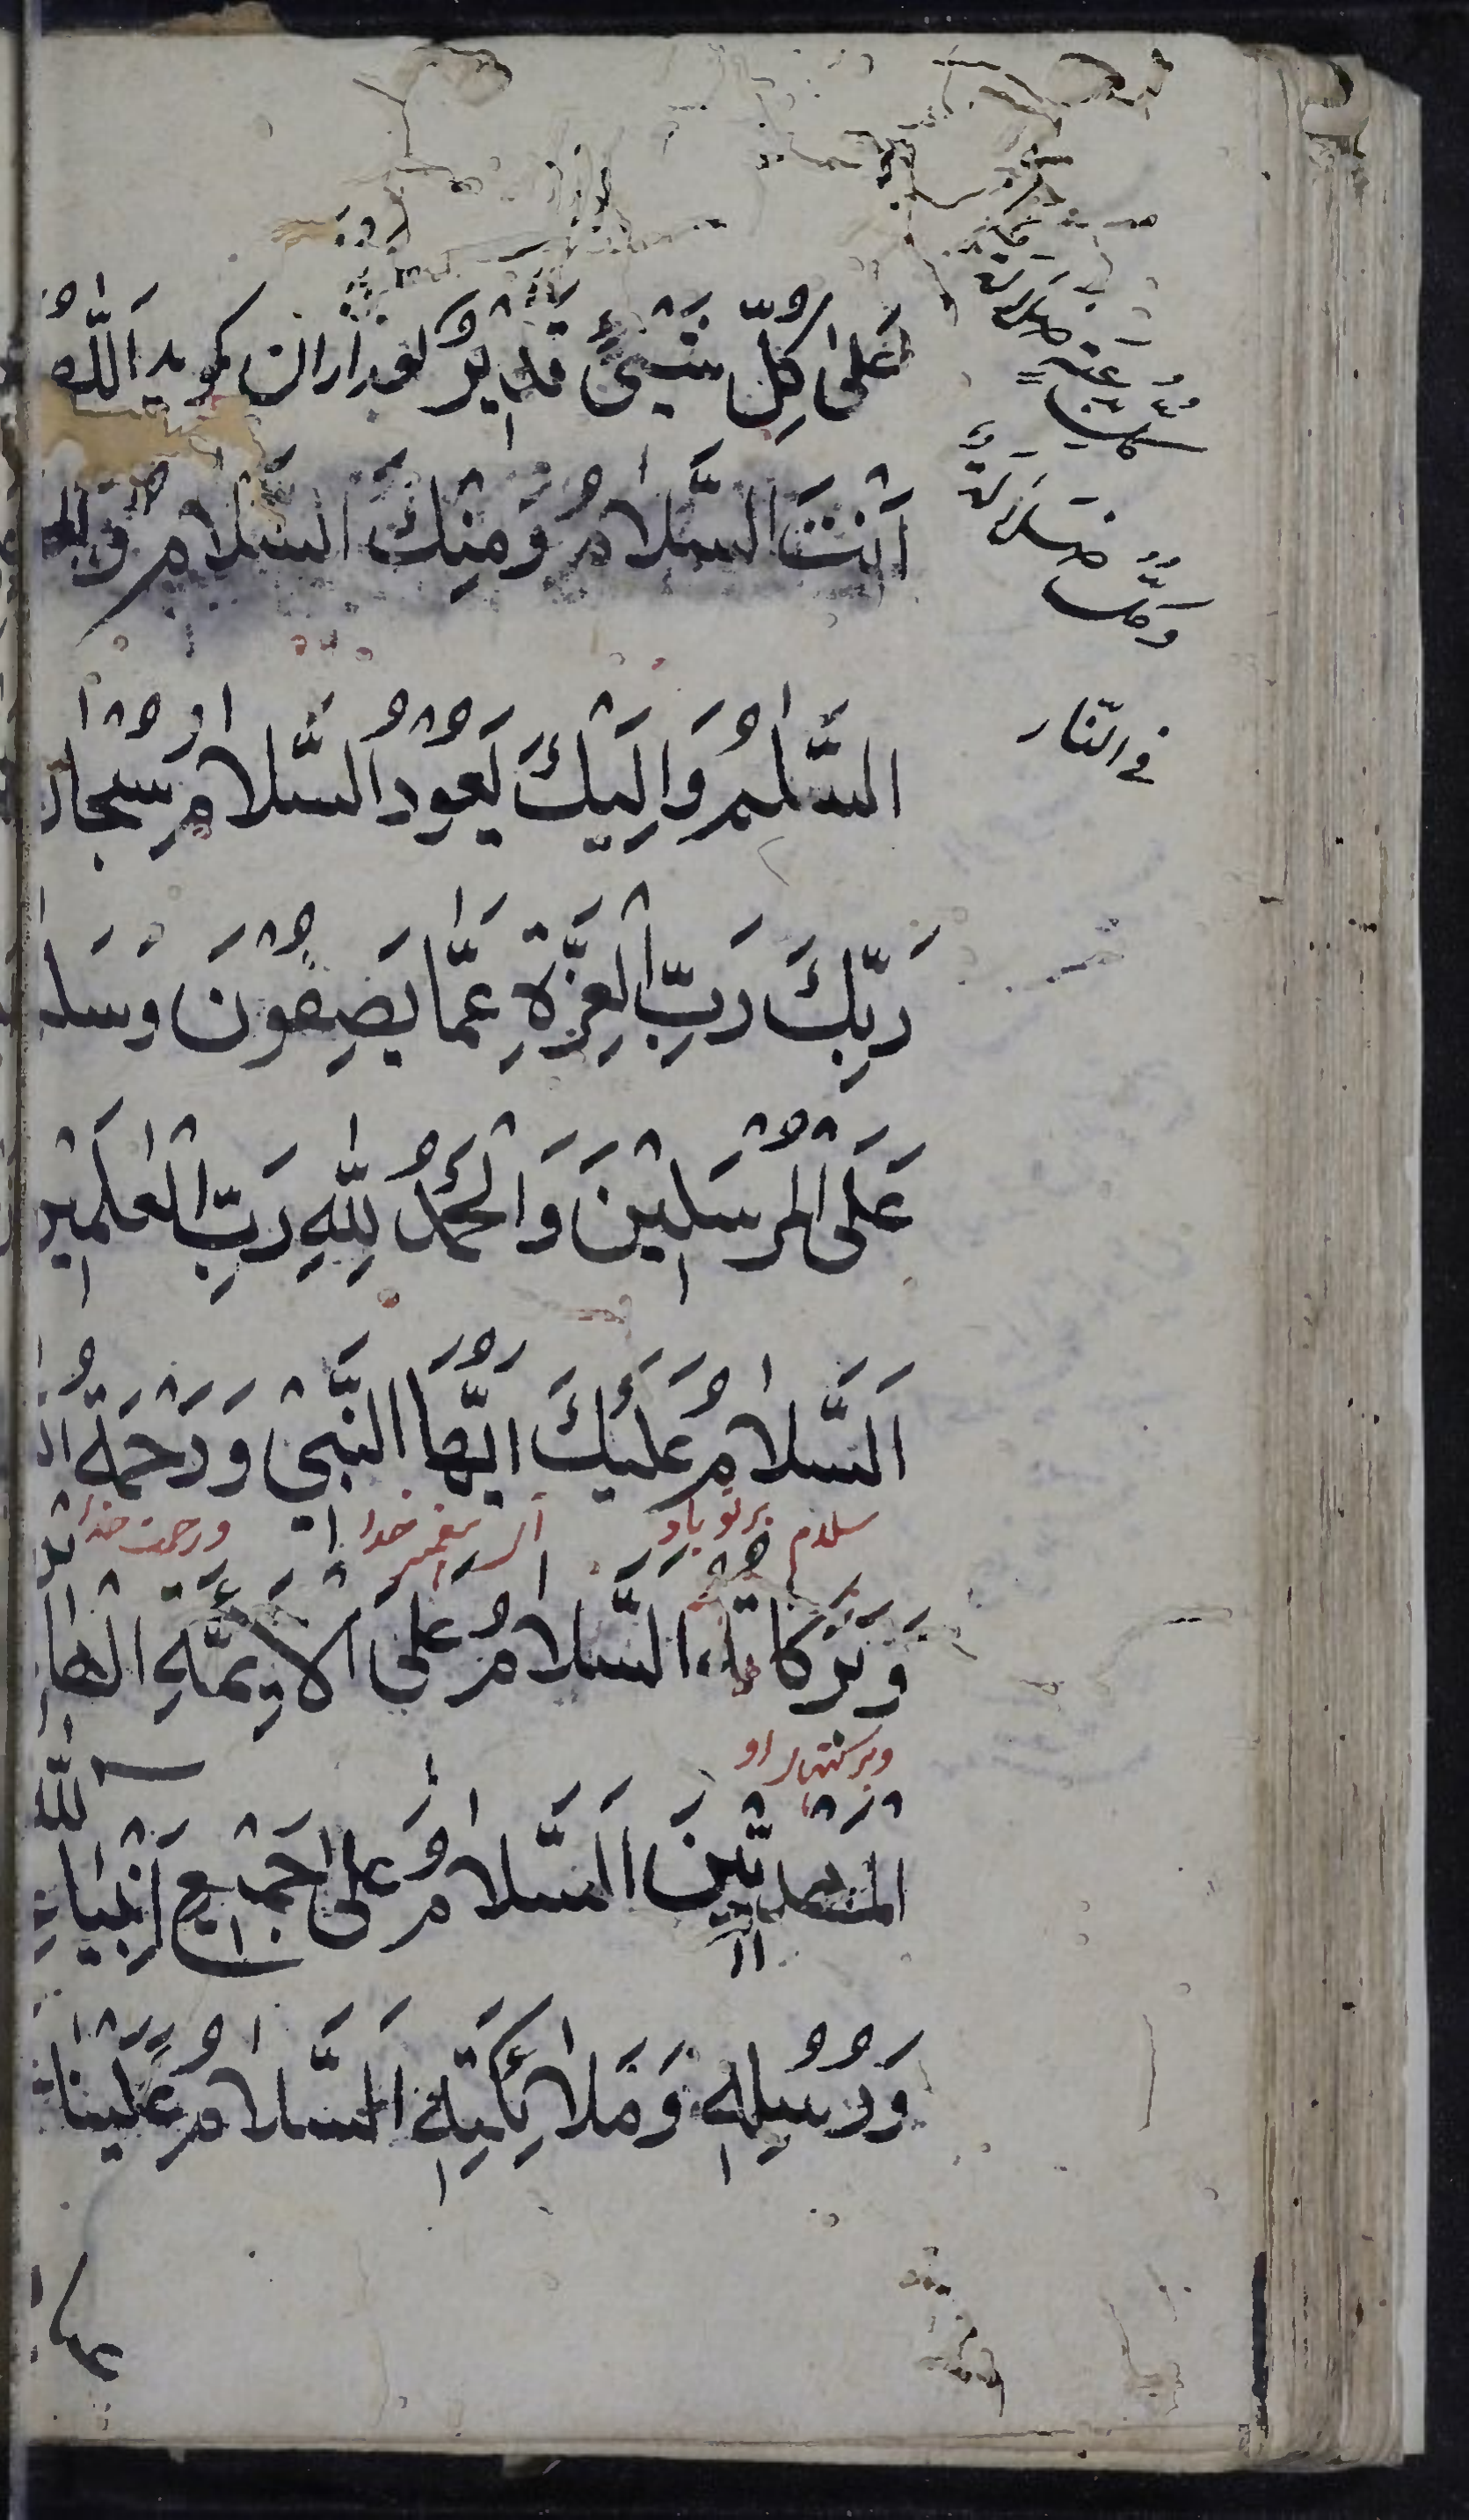 عَلىٰ كُلِّ شَيْئٍ قَدْيرٌ بعد ازان كويد اَللّٰهُمَّ
اَنْتَ السَّلاٰمُ وَمِنْكَ السَّلاٰمُ وَلَكَ
السَّلٰمُ وَاِلَيْكَ يَعُوْدُ السَّلاٰمُ سُبْحانَ
رَبِّكَ رَبِّ الْعِزَّةِ عَمّٰا يَصِفُوْنَ وَسَلامٌ
عَلَى الْمُرْسَلْينَ وَالْحَمْدُ لِلّٰهِ رَبِّ الْعٰلَمْينَ
اَلسَّلاٰمُ عَلَيْكَ اَيُّهَا النَّبْيُّ وَرَحْمَةُ اللّٰهِ
سلام بر تو باد اى پيغمبر خدا ورحمت خدا
وَبَرَكَاتُهُ السَّلاٰمُ عَلَى الْاَئِمَّةِ الْهٰادْينَ
وبركتهاى او
الْمَهْدِيّْينَ اَلسَّلاٰمُ عَلىٰ جَمْيعِ اَنْبِيٰاءِ اللّٰهِ
وَرُسُلِهِ وَمَلاٰئِكَتِهِ اَلسَّلاٰمُ عَلَيْنٰا
ضلالة
كل بدعة
وكلّ ضلالة
فى النّار